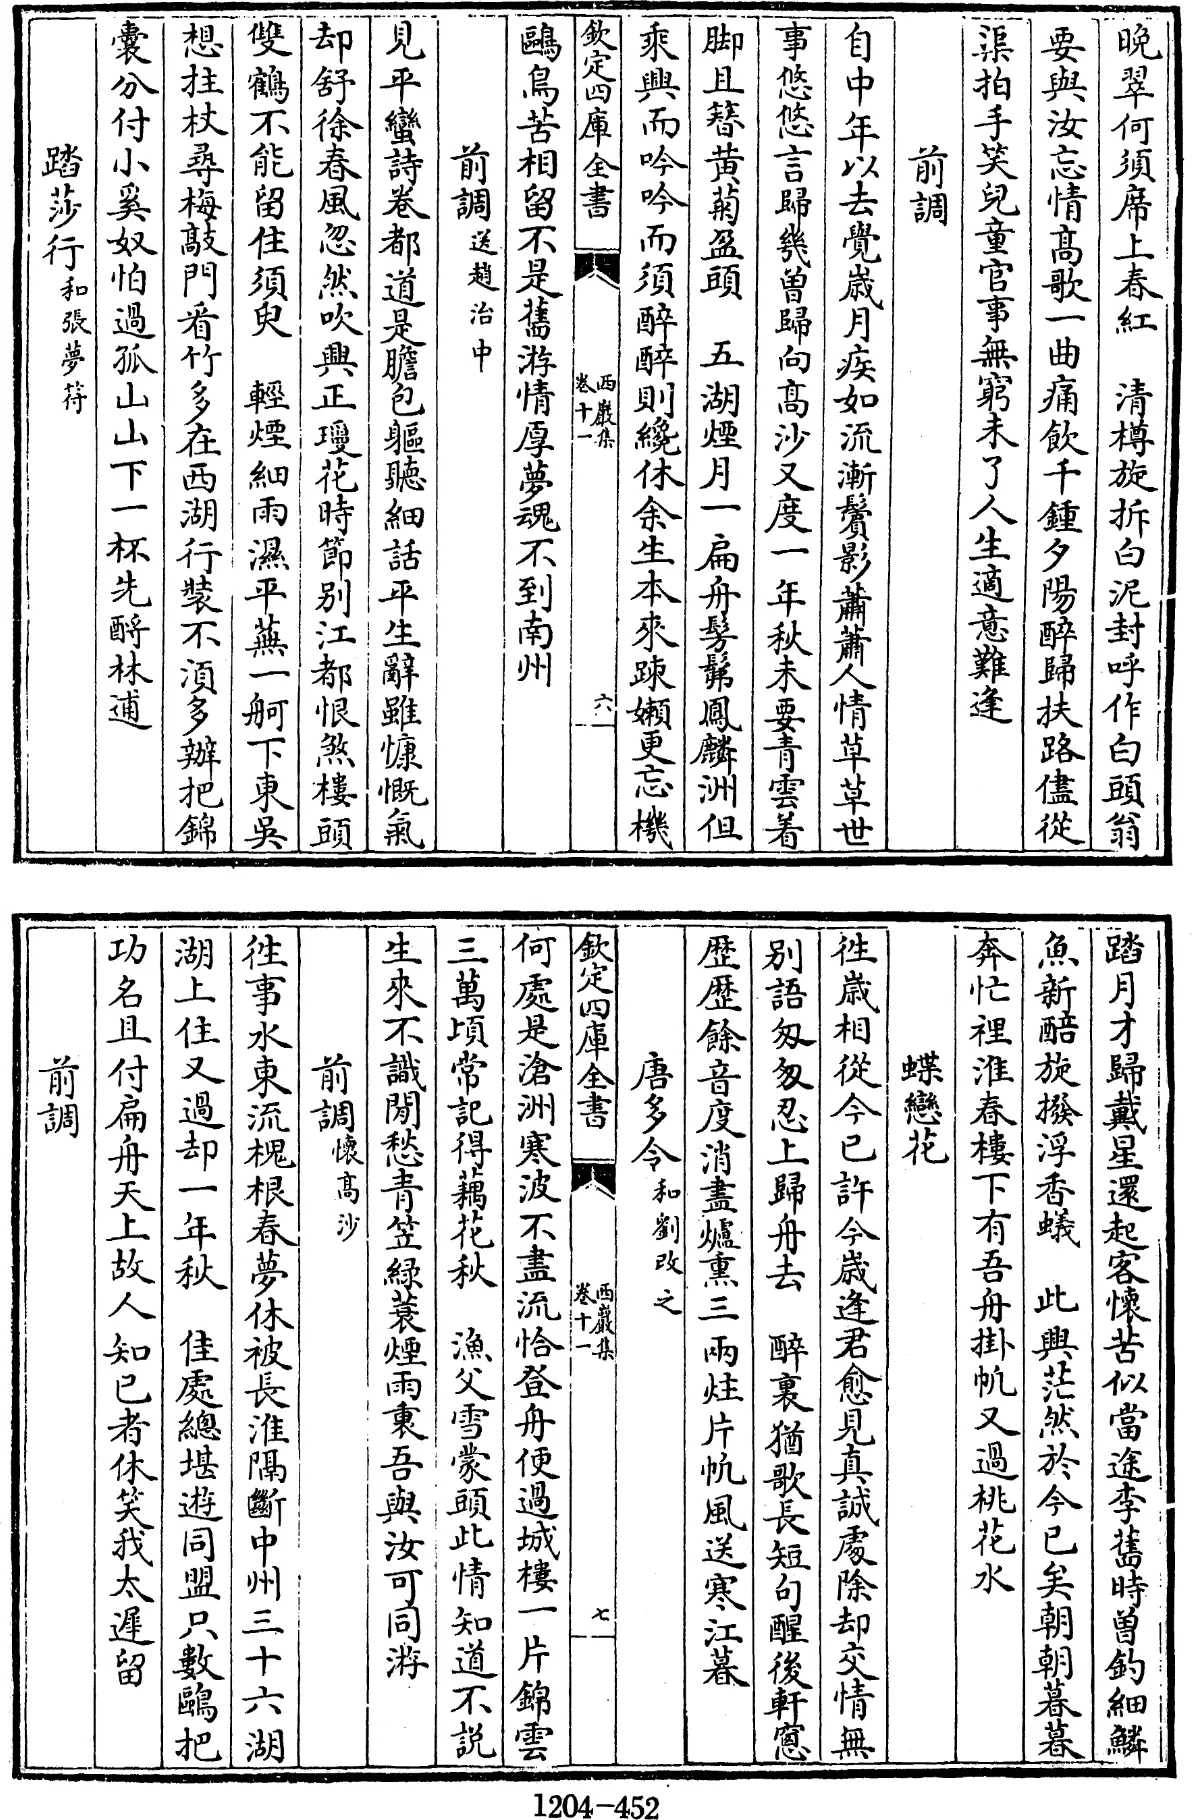 晚翠何須席上春紅　清樽旋拆白泥封呼作白頭翁
要與汝忘情高歌一曲痛飲千鍾夕陽醉歸扶路儘從
渠拍手笑兒童官事無窮未了人生適意難逢
前調
自中年以去覺歲月疾如流漸鬢影蕭蕭人情草草世
事悠悠言歸幾曽歸向高沙又度一年秋未要青雲着
脚且簪黄菊盈頭　五湖煙月一扁舟髣髴鳳麟洲但
乘興而吟吟而須醉醉則纔休余生本來疎嬾更忘機
欽定四庫全書
西巖集
卷十一
六
鷗鳥苦相留不是舊游情厚夢魂不到南州
前調送趙治中
見平蠻詩卷都道是膽包軀聽細話平生辭雖慷慨氣
却舒徐春風忽然吹興正瓊花時節别江都恨煞樓頭
雙鶴不能留住須臾　輕煙細雨濕平蕪一舸下東吳
想拄杖尋梅敲門看竹多在西湖行裝不湏多辦把錦
囊分付小奚奴怕過孤山山下一杯先酹林逋
踏莎行和張夢符
踏月才歸戴星還起客懷苦似當途李舊時曽釣細鱗
魚新醅旋撥浮香蟻　此興茫然於今已矣朝朝暮暮
奔忙裡淮春樓下有吾舟掛帆又過桃花水
蝶戀花
徃歲相從今已許今歲逢君愈見真誠處除却交情無
别語匆匆忍上歸舟去　醉裏猶歌長短句醒後軒窻
歴歴餘音度消盡爐熏三兩炷片帆風送寒江暮
唐多令和劉改之
欽定四庫全書
西巖集
卷十一
七
何處是滄洲寒波不盡流恰登舟便過城樓一片錦雲
三萬頃常記得藕花秋　漁父雪蒙頭此情知道不説
生來不識閒愁青笠緑蓑煙雨裏吾與汝可同游
前調懷高沙
徃事水東流槐根春夢休被長淮隔斷中州三十六湖
湖上住又過却一年秋　佳處總堪遊同盟只數鷗把
功名且付扁舟天上故人知已者休笑我太遲留
前調
1204-452